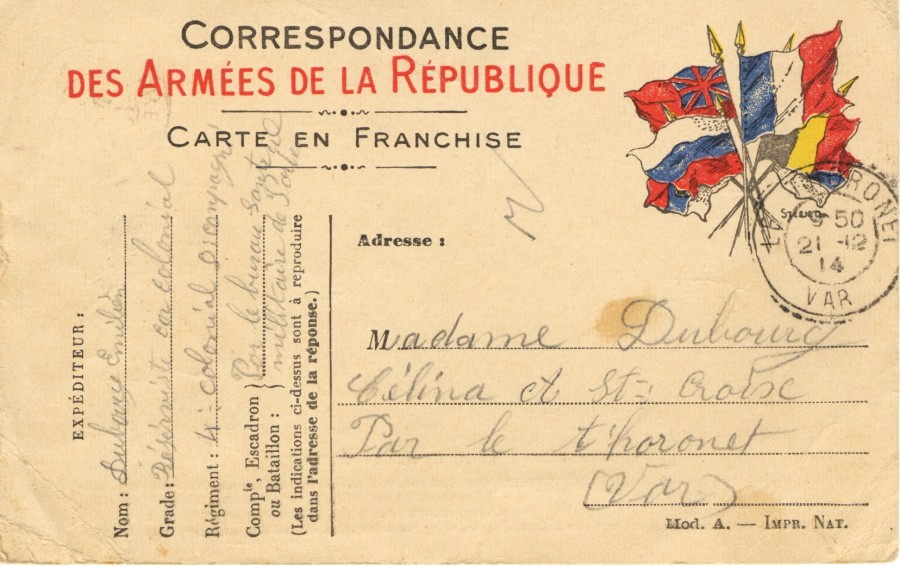 CORRESPONDANCE
DES ARMÉES DE LA RÉPUBLIQUE
CARTE EN FRANCHISE
Adresse :
Madame Dubourg
Célina et St= Croix
Par le thoronet
(Var)
Mod. A. — IMPR. NAT.
EXPÉDITEUR :
Nom : Dubourg Emilien
Grade : Réserviste colonial
Régiment : 4= colonial
Comp^ie, Escadron
ou Bataillon :
} Par le bureau
militaire de
(Les indications ci-dessus sont à reproduire
dans l'adresse de la réponse.)
RONET
9 50
21 -12
14
VAR